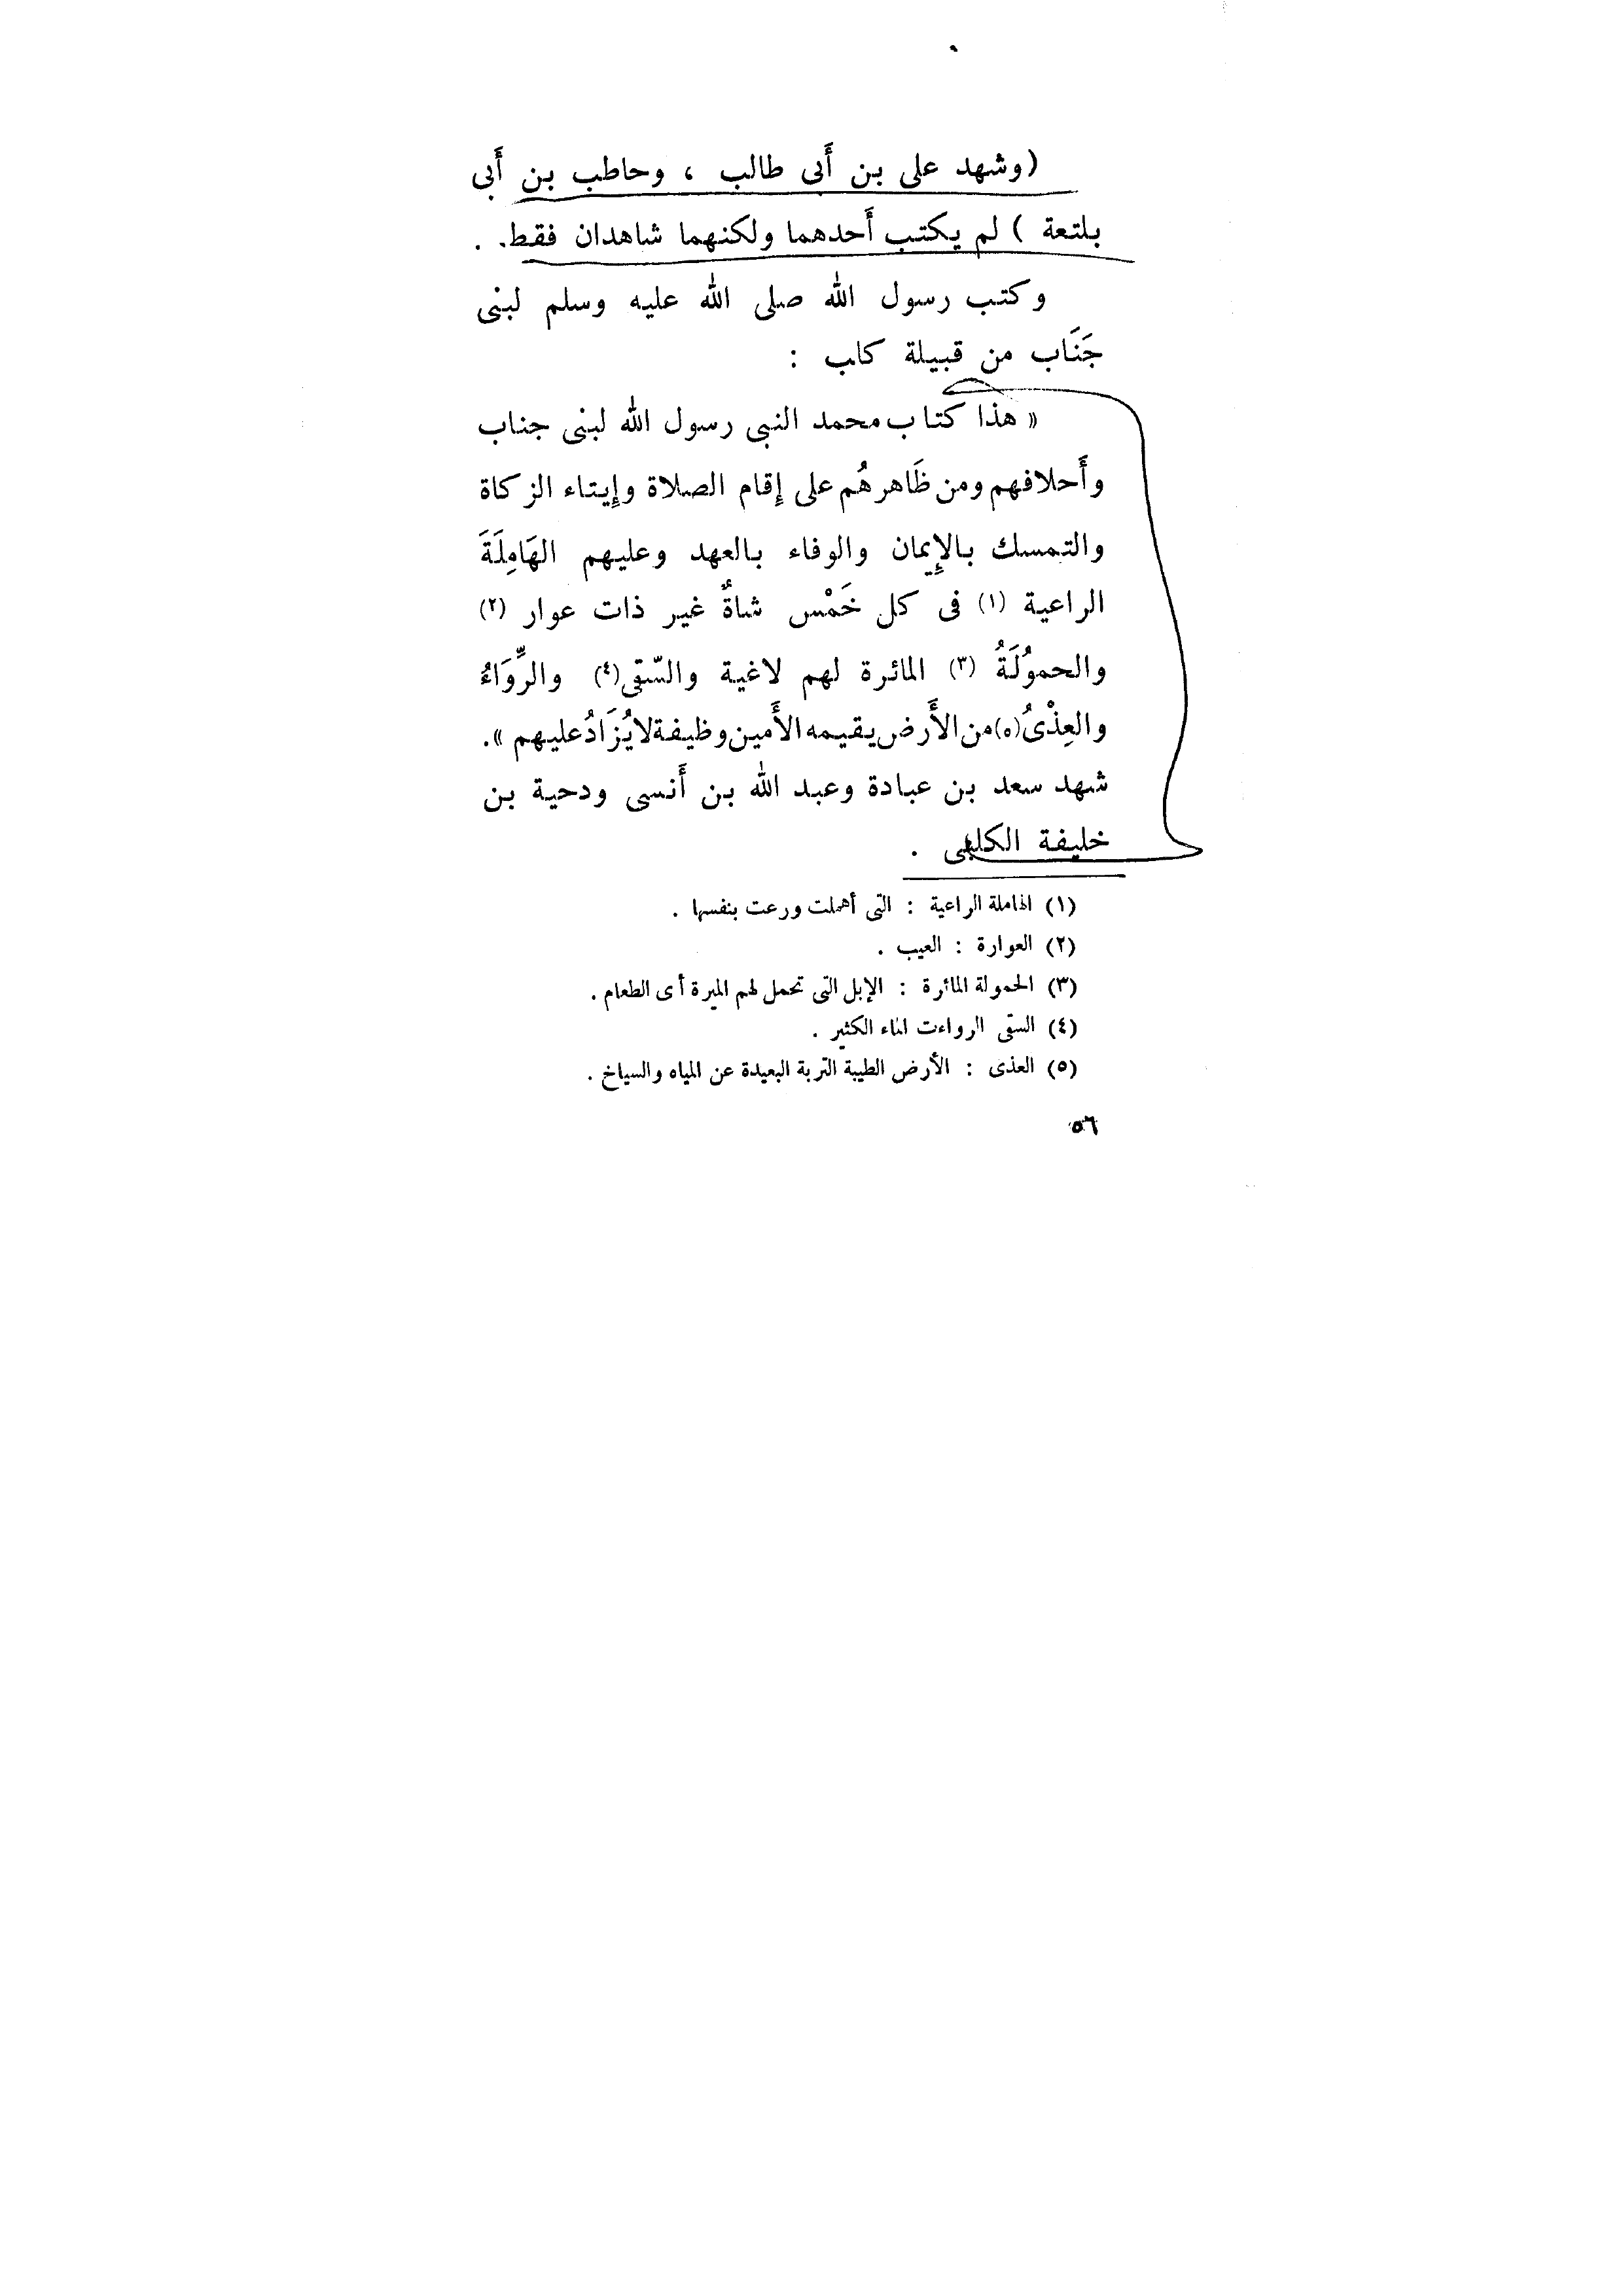 (وشهد على بن أَبى طالب ، وحاطب بن أَبى
بلتعة ) لم يكتب أَحدهما ولكنهما شاهدان فقط. .
وكتب رسول الله صلى الله عليه وسلم لبنى
جَنَاب من قبيلة كلب :
« هذا كتاب محمد النبى رسول الله لبنى جناب
وأَحلافهم ومن ظَاهرهُم على إِقام الصلاة وإِيتاء الزكاة
والتمسك بالإِيمان والوفاء بالعهد وعليهم الهَامِلَةَ
الراعية (١) فى كل خَمْس شاةٌ غير ذات عوار (٢)
والحموُلَةُ (٣) المائرة لهم لاغية والسّقى(٤) والرِّوَاءُ
والعِذْىُ(٥)من الأَرض يقيمه الأَمين وظيفة لا يُزَادُ عليهم ».
شهد سعد بن عبادة وعبد الله بن أَنسى ودحية بن
خليفة الكلبى .
(١) الهاملة الراعية : التى أهملت ورعت بنفسها .
(٢) العوارة : العيب .
(٣) الحمولة المائرة : الإبل التى تحمل لهم الميرة أى الطعام .
(٤) السقى الرواءت الماء الكثير .
(٥) العذى : الأرض الطيبة التربة البعيدة عن المياه والسياخ .
٥٦